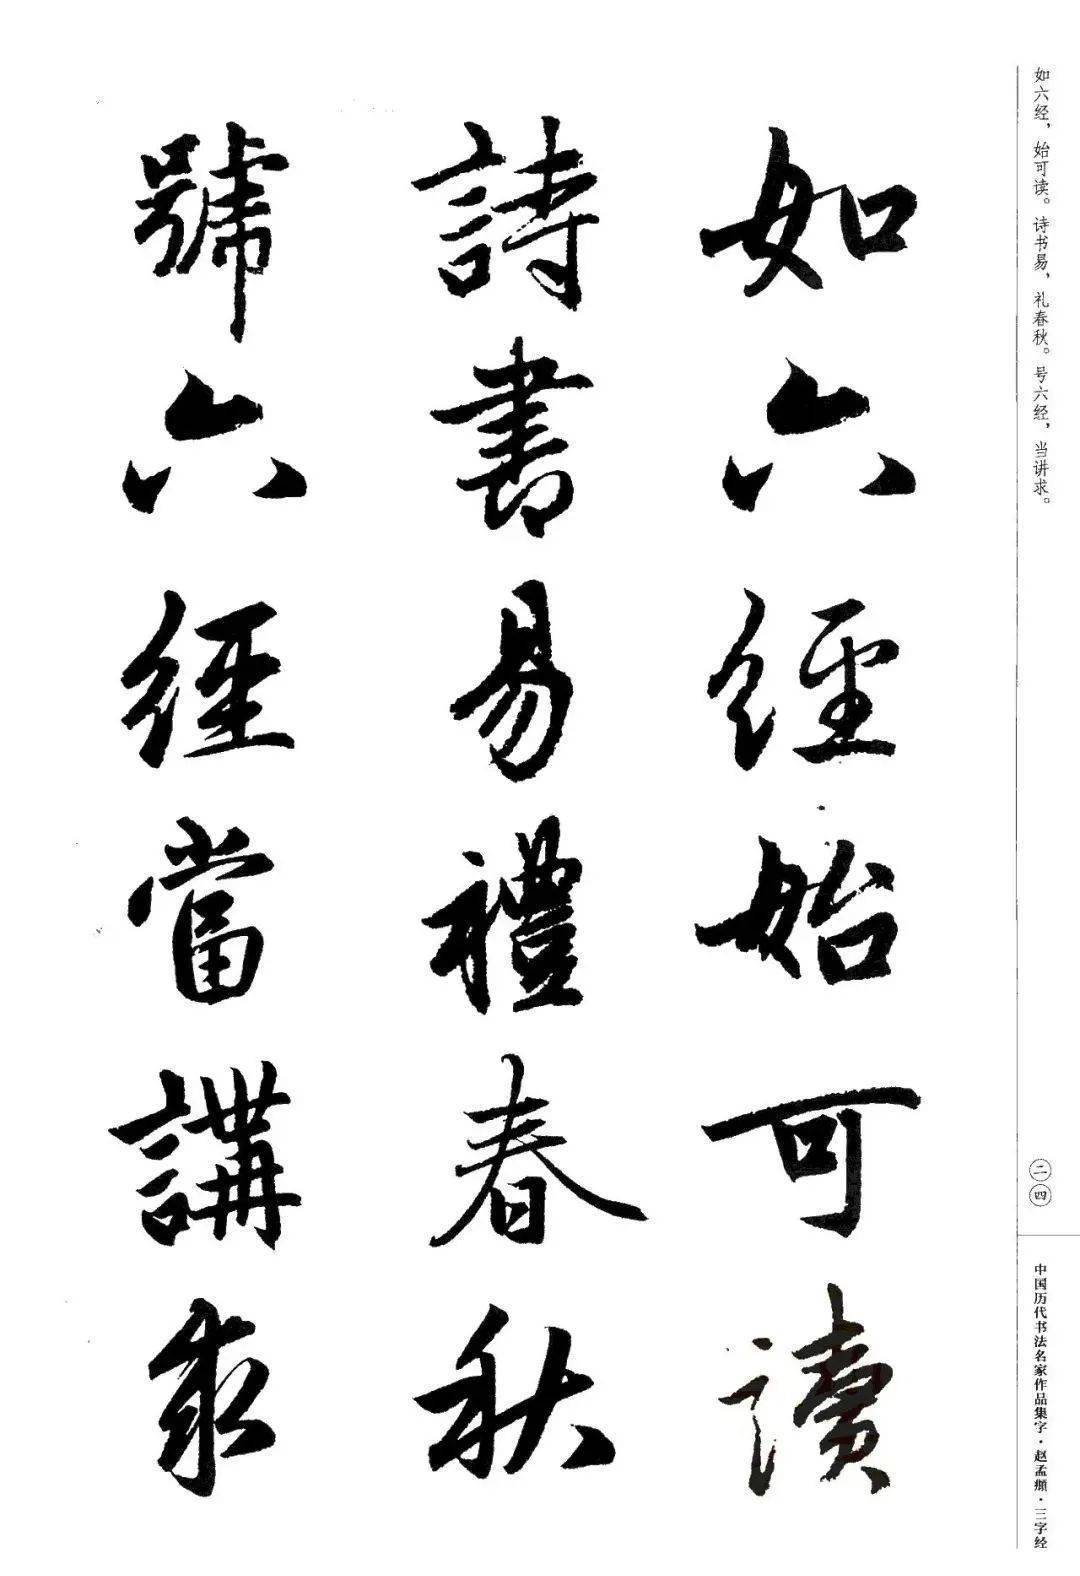 如六经，始可读。诗书易，礼春秋。号六经，当讲求。
二四
中国历代书法名家作品集字·赵孟頫·三字经
如六經始可讀
詩書易禮春秋
號六經當講求